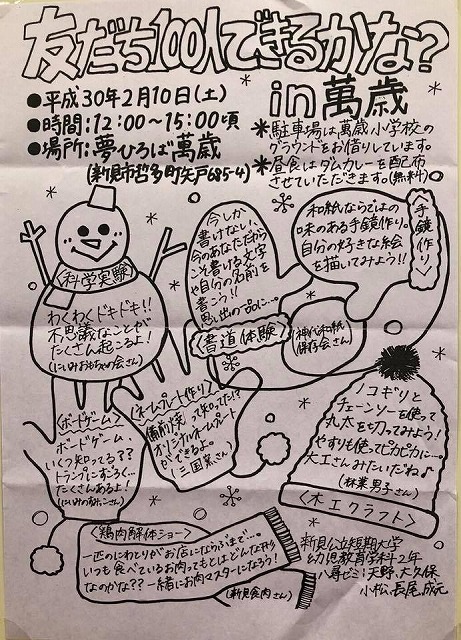 友だち100人できるかな?
in 萬歳
●平成30年2月10日(土)
●時間:12:00〜15:00頃
●場所:夢ひろば萬歳
(新見市哲多町矢戸685-4)
*駐車場は萬歳小学校の
グラウンドをお借りしています。
*昼食はダムカレーを配布
させていただきます。(無料)
<科学実験>
わくわくドキドキ!!
不思議なことが
たくさん起こるよ!
(にいみおもちゃの会さん)
今しか
書けない、
今のあなただから
こそ書ける文字
や自分の名前を
書こう!!
思い出の品に…
<書道体験>
和紙ならではの
味のある手鏡作り。
自分の好きな絵
を描いてみよう!!
<手鏡作り>
(神代和紙
保存会さん)
<ボードゲーム>
ボードゲーム、
いくつ知ってる??
トランプにすごろく…
たくさんあるよ!
<ネームプレート作り>
備前焼って知ってた!?
オリジナルネームプレート
ができるよ。
ノコギリと
チェーンソーを使って
丸太を切ってみよう!
やすりも使ってピカピカに…
大工さんみたいだね♪
(林業男子さん)
<木工クラフト>
<鶏肉解体ショー>
一匹のにわとりがお店にならぶまで…
いつも食べているお肉ってもとはどんな形
なのかな??一緒にお肉マスターになろう!
(新見食肉さん)
新見公立短期大学
幼児教育学科2年
八尋ゼミ:天野、大久保
小松、長尾、成元